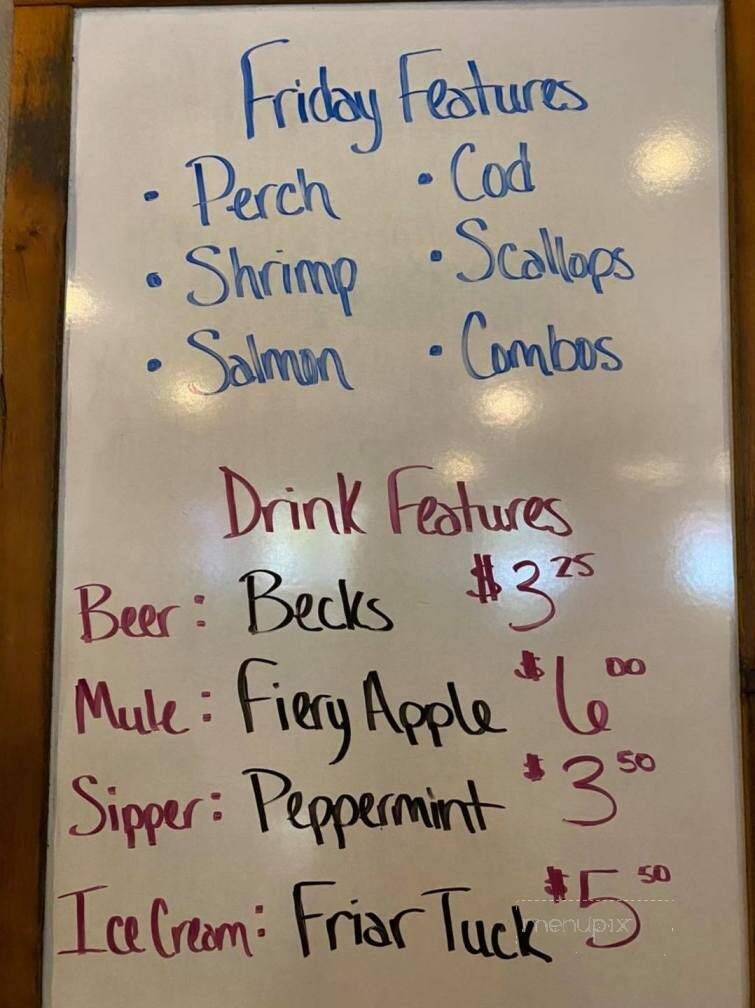 Friday Features
• Perch • Cod
• Shrimp • Scallops
• Salmon • Combos
Drink Features
Beer: Becks $3.25
Mule: Fiery Apple $6.00
Sipper: Peppermint $3.50
Ice Cream: Friar Tuck $5.50
menupix